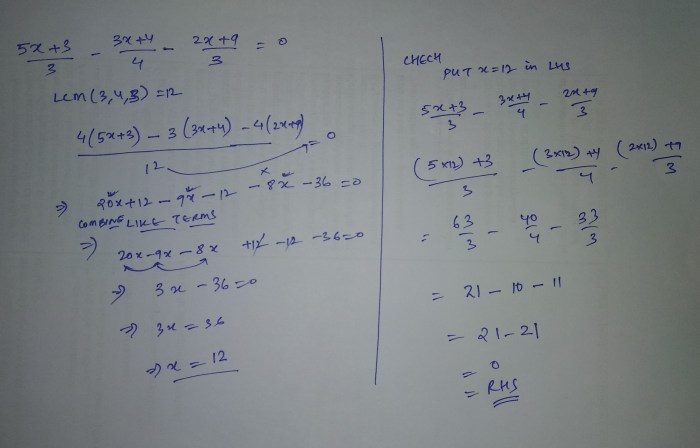 (5x+3)/3 - (3x+4)/4 - (2x+9)/3 = 0
LCM(3,4,3) = 12
(4(5x+3) - 3(3x+4) - 4(2x+9))/12 = 0
⇒ 20x+12 - 9x - 12 - 8x - 36 = 0
COMBINE LIKE TERMS
⇒ 20x - 9x - 8x + 12 - 12 - 36 = 0
⇒ 3x - 36 = 0
⇒ 3x = 36
⇒ x = 12
CHECK
PUT x = 12 in LHS
(5x+3)/3 - (3x+4)/4 - (2x+9)/3
((5×12)+3)/3 - ((3×12)+4)/4 - ((2×12)+9)/3
= 63/3 - 40/4 - 33/3
= 21 - 10 - 11
= 21 - 21
= 0
= RHS